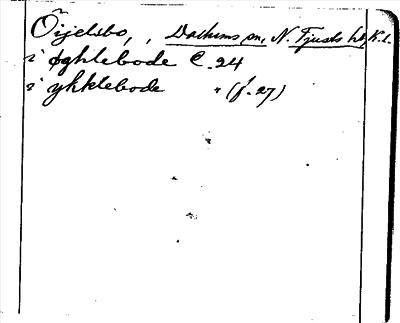 Öijelsbo, , Dalhems sn, N. Tjusts hd, K.l.
i øghlebode C. 24
i ykklebode " (f. 27)